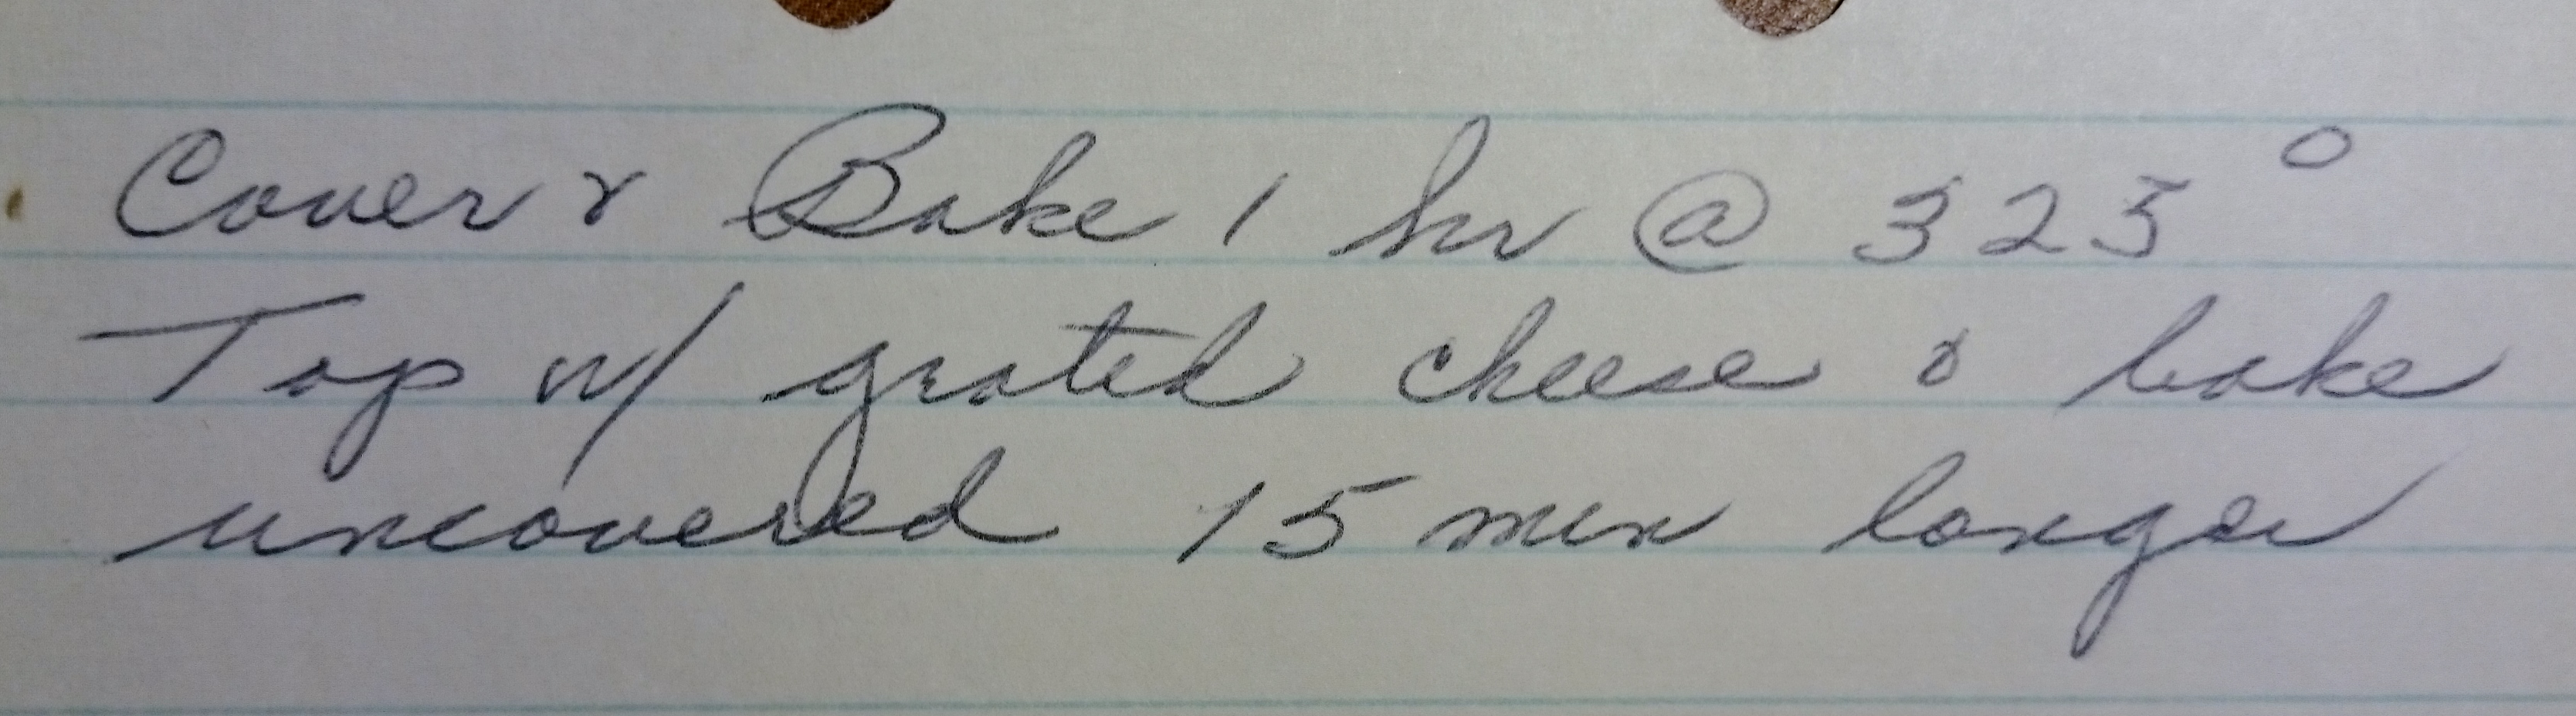 Cover & Bake 1 hr @ 325°
Top w/ grated cheese & bake
uncovered 15 min longer